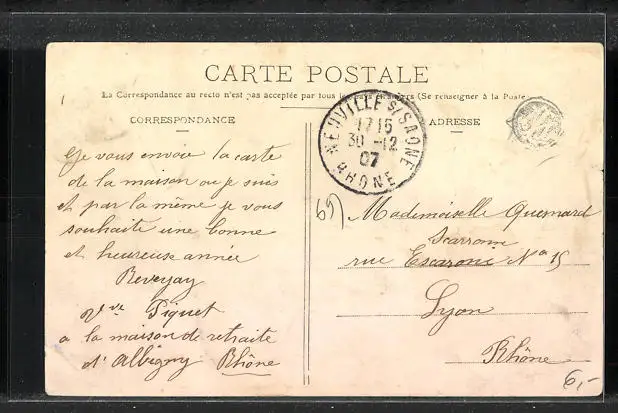 CARTE POSTALE
La Correspondance au recto n'est pas acceptée par tous les pays étrangers (Se renseigner à la Poste
CORRESPONDANCE
ADRESSE
NEUVILLE S/ SAONE
17 15
30 -12
07
RHONE
Je vous envoie la carte
de la maison ou je suis
et par la même je vous
souhaite une bonne
et heureuse année
Vve Piquet
a la maison de retraite
d'Albigny Rhône
69)
Mademoiselle Quemard
rue Escaroni No 15
Lyon
Rhône
6,-